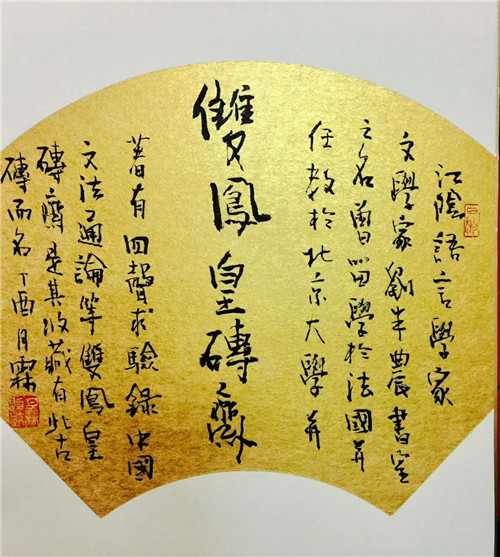 江陰語言學家
文學家劉半農書室
之名曾留學於法國并
任教於北京大學并
雙鳳皇磚齋
著有四聲實驗錄中國
文法通論等雙鳳皇
磚齋是其收藏有此古
磚而名丁酉月霖